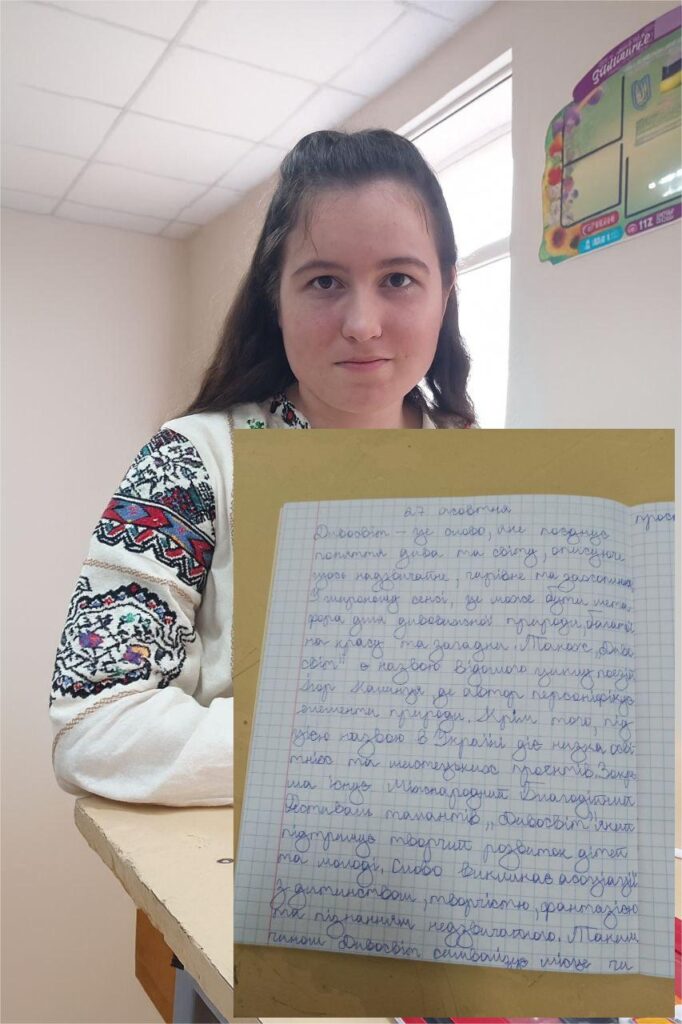 Запишіть
112
27 жовтня
прос
Дивосвіт – це слово, яке поєднує
поняття дива та світу, описуючи
щось надзвичайне, чарівне та захоплююче.
У широкому сенсі, це може бути мета
фора для дивовижної природи, багатої
на красу та загадки. Також „Диво
світ" є назвою відомого циклу поезій
Ігор Калинця де автор персоніфікує
елементи природи. Крім того, під
цією назвою в Україні діє низка осві
тніх та мистецьких проєктів. Зокре
ма існує Міжнародний Благодійний
Фестиваль талантів „Дивосвіт" який
підтримує творчий розвиток дітей
та молоді. Слово викликає асоціації
з дитинством, творчістю, фантазією
та пізнанням недзвичайного. Таким
чином Дивосвіт символізує місце чи